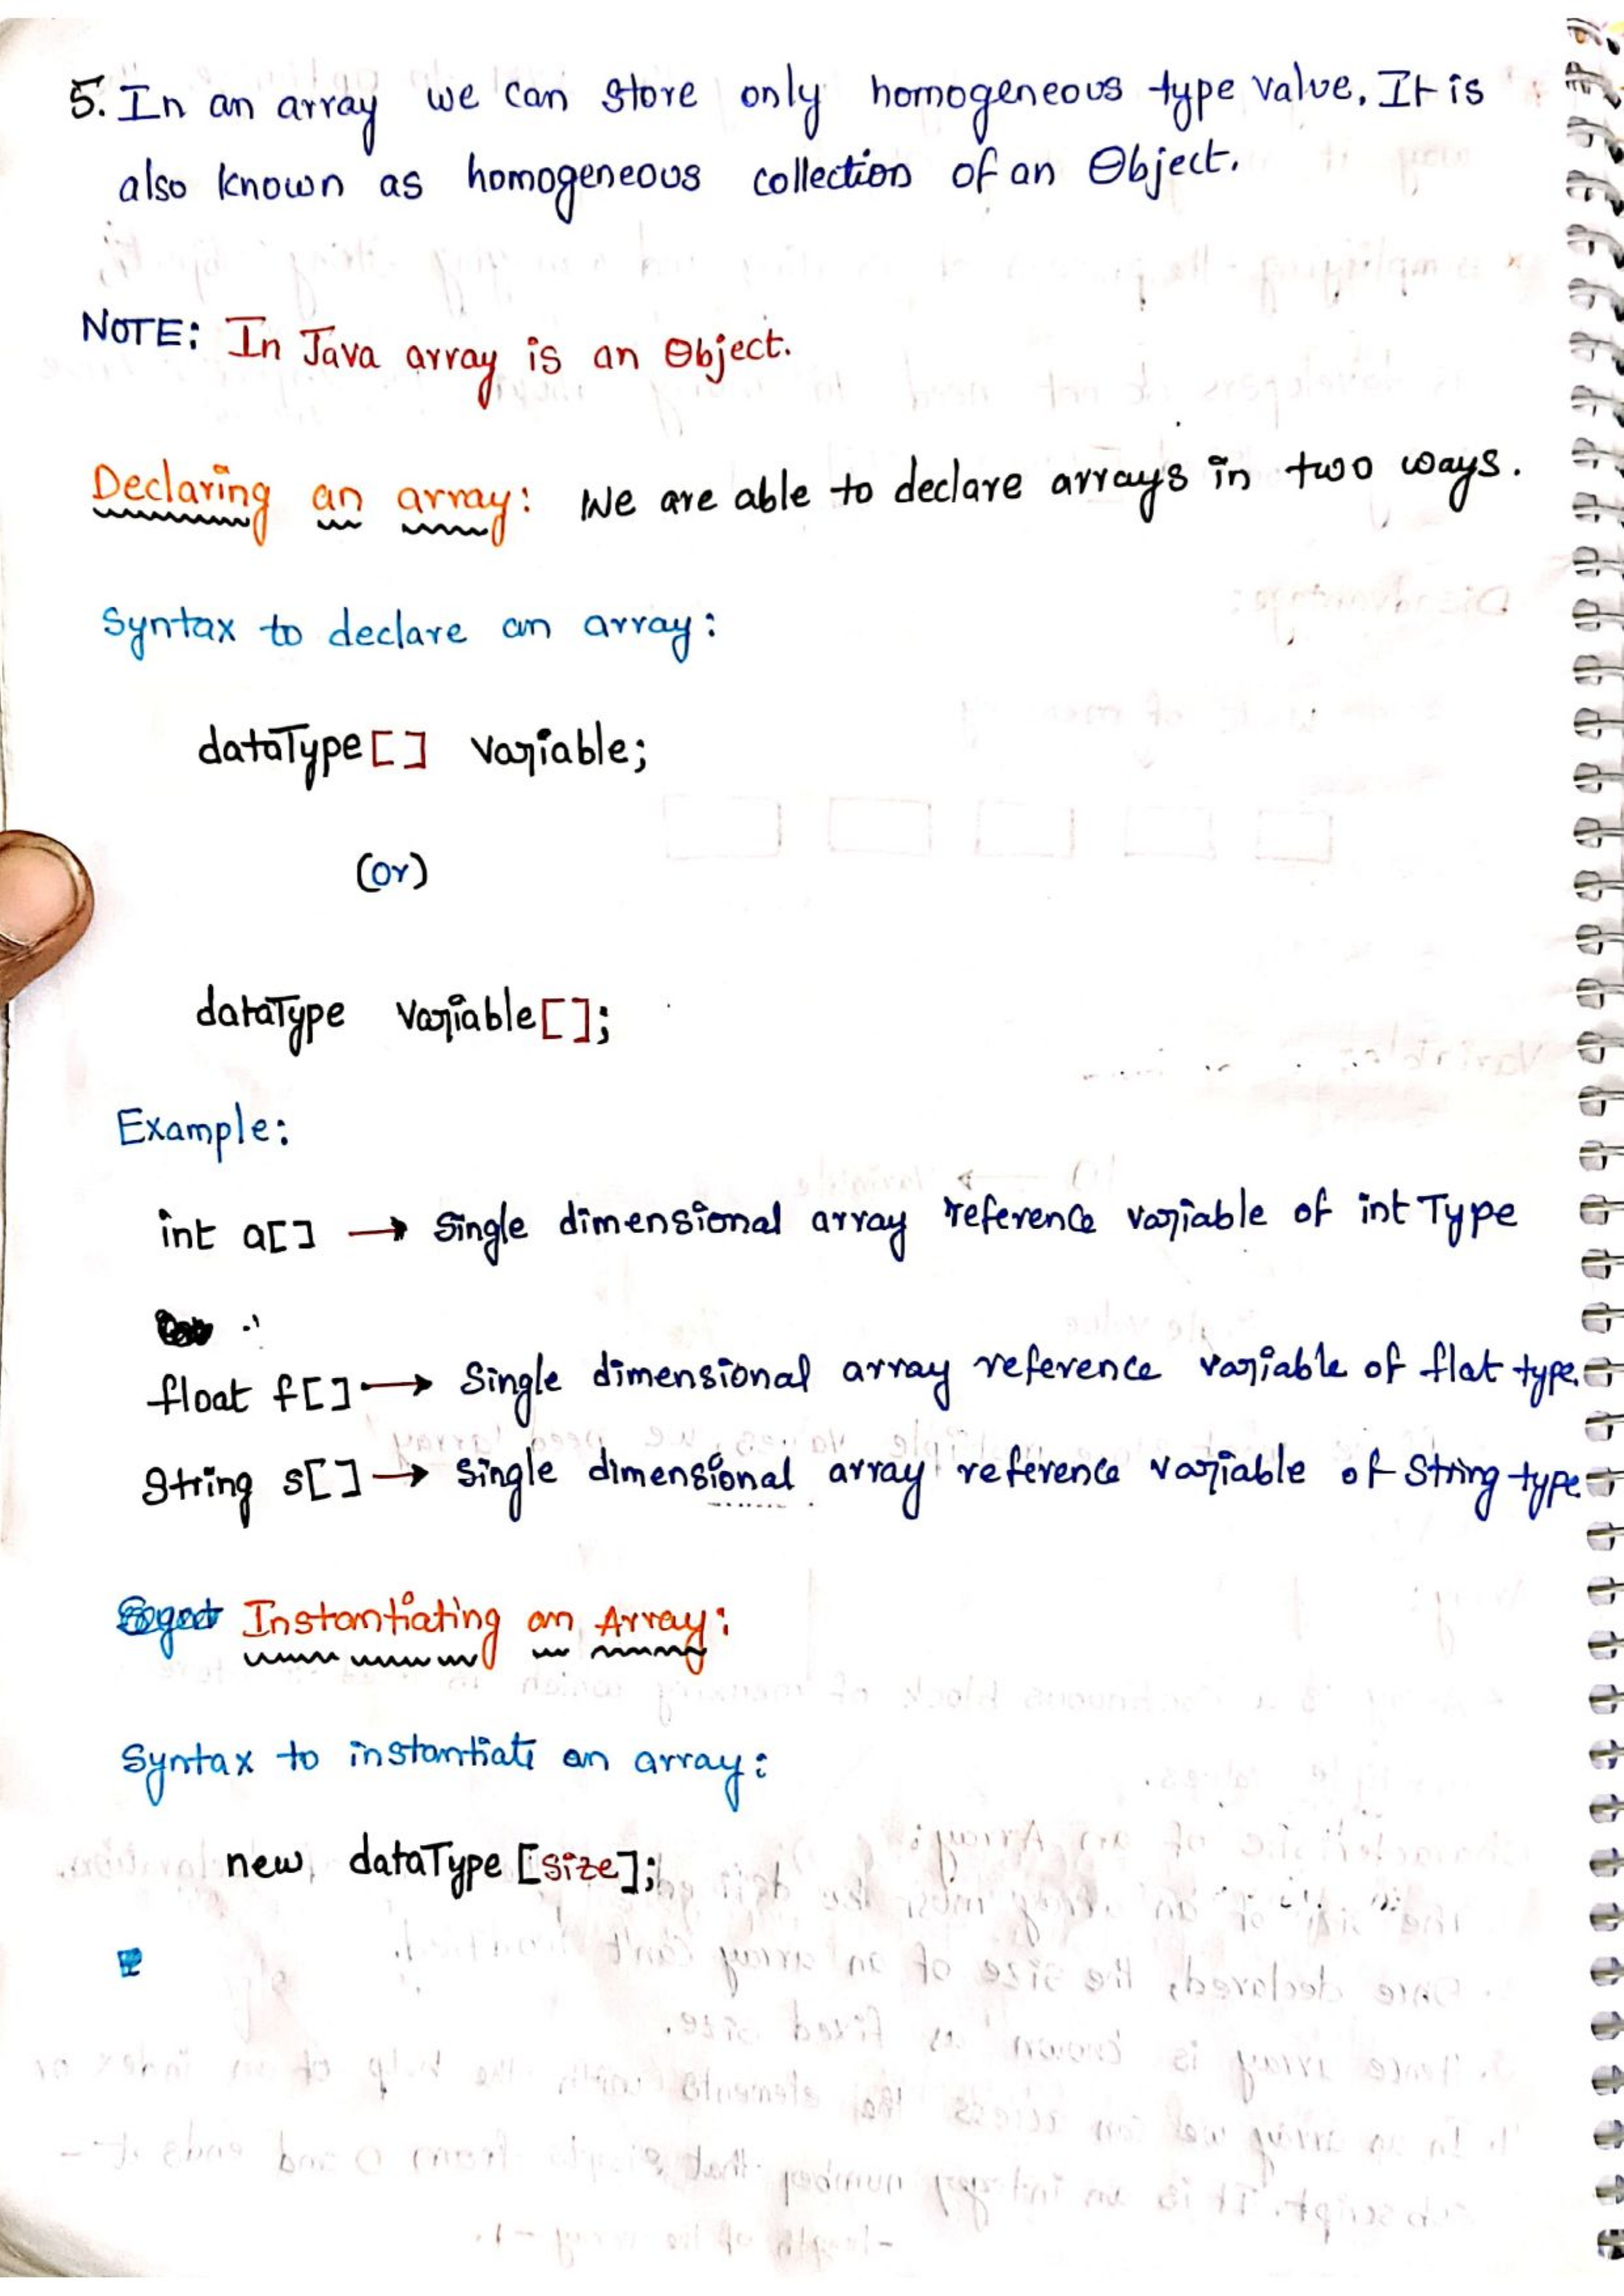 5. In an array we can store only homogeneous type value. It is
also known as homogeneous collection of an Object.
NOTE: In Java array is an Object.
Declaring an array: We are able to declare arrays in two ways.
Syntax to declare an array:
dataType[] variable;
(or)
dataType variable[];
Example:
int a[] → single dimensional array reference variable of int Type
float f[] → Single dimensional array reference variable of flat type.
String s[] → single dimensional array reference variable of String type
Instantiating an Array:
Syntax to instantiate an array:
new dataType [size];